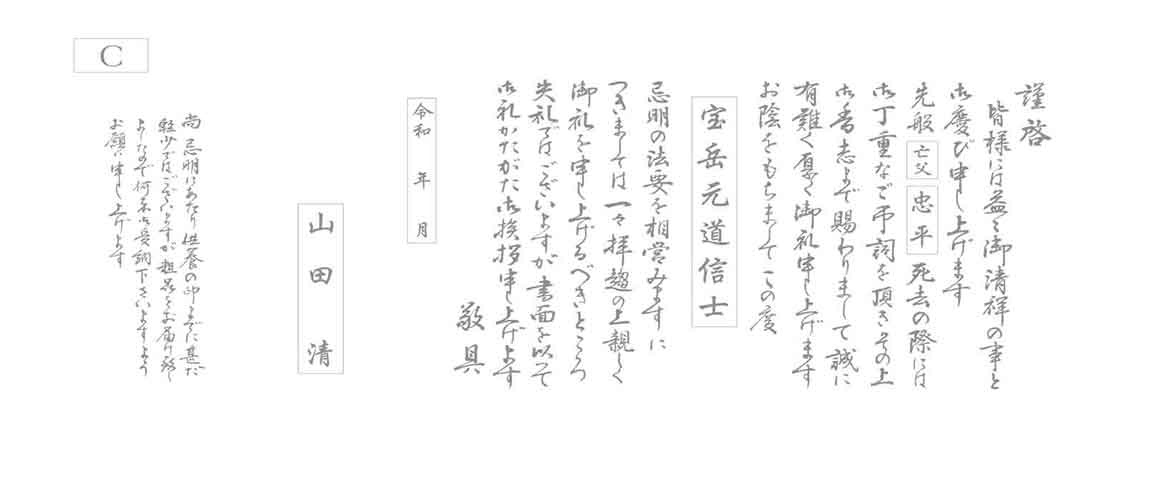 C
謹啓
皆様には益々御清祥の事と
御慶び申し上げます
先般 亡父 忠平 死去の際には
御丁重なご弔詞を頂きその上
御香志まで賜わりまして誠に
有難く厚く御礼申し上げます
お陰をもちましてこの度
宝岳元道信士
忌明の法要を相営みますに
つきましては一々拝趨の上親しく
御礼を申し上げるべきところ
失礼ではございますが書面を以って
御礼かたがた御挨拶申し上げます
敬具
令和 年 月
山田 清
尚 忌明にあたり供養の印までに甚だ
軽少ではございますが粗品をお届け致し
ましたので何卒御受納下さいますよう
お願い申し上げます